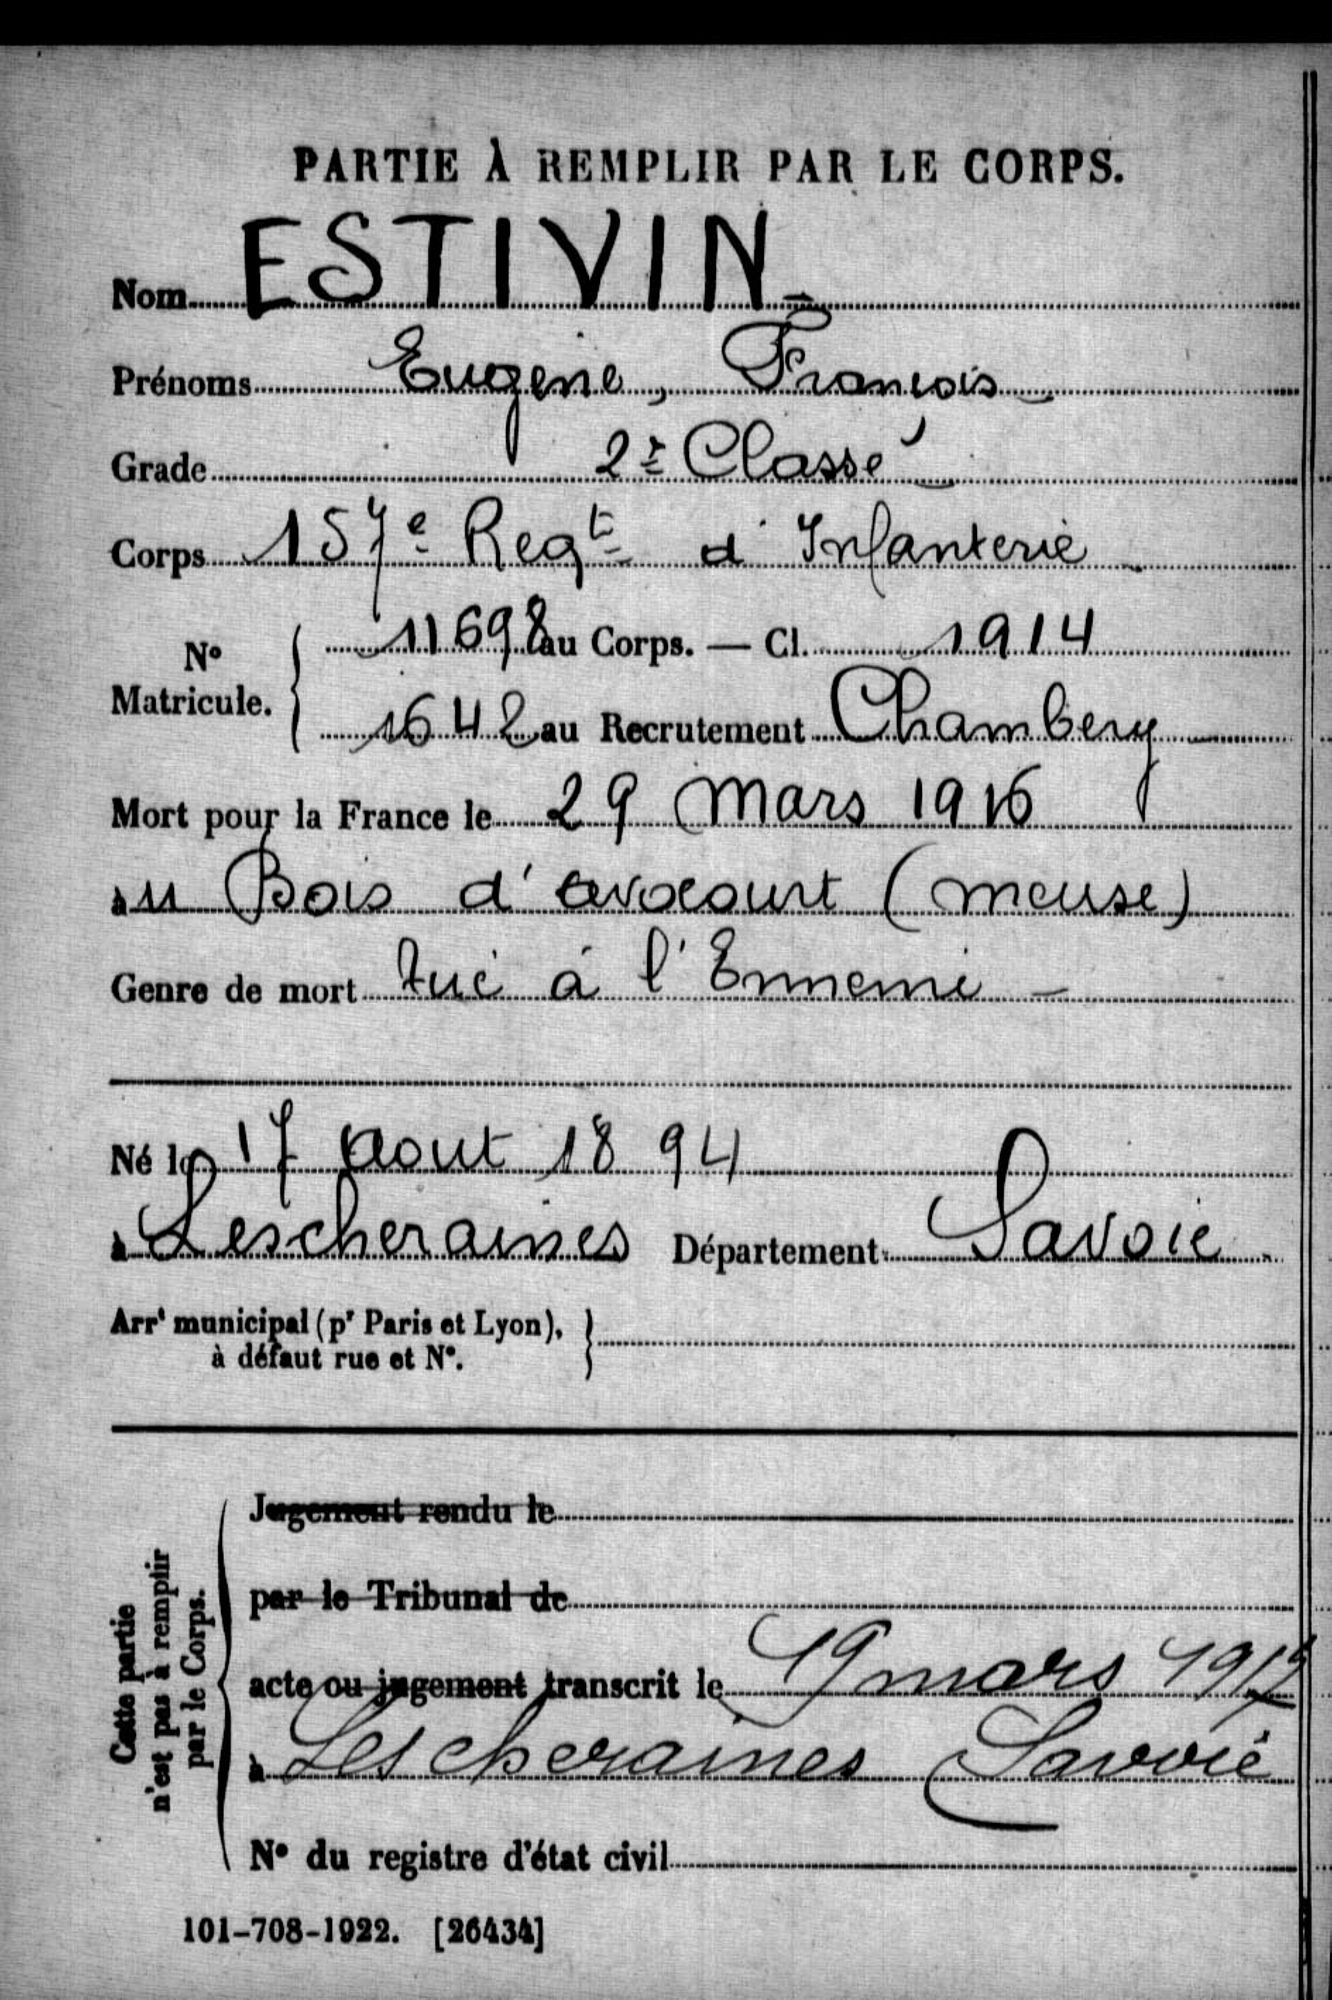 PARTIE À REMPLIR PAR LE CORPS.
Nom ESTIVIN
Prénoms Eugène, François
Grade 2e Classe
Corps 157e Regt d'Infanterie
No Matricule. { 11698 au Corps. — Cl. 1914
1642 au Recrutement Chambery
Mort pour la France le 29 Mars 1916
au Bois d'avocourt (meuse)
Genre de mort tué à l'Ennemi –
Né le 17 aout 1894
à Lescheraines Département Savoie
Arrt municipal (pr Paris et Lyon), à défaut rue et No. }
Cette partie n'est pas à remplir par le Corps. {
Jugement rendu le
par le Tribunal de
acte ou jugement transcrit le 19 mars 191
à Lescheraines Savoie
No du registre d'état civil
101-708-1922. [26434]